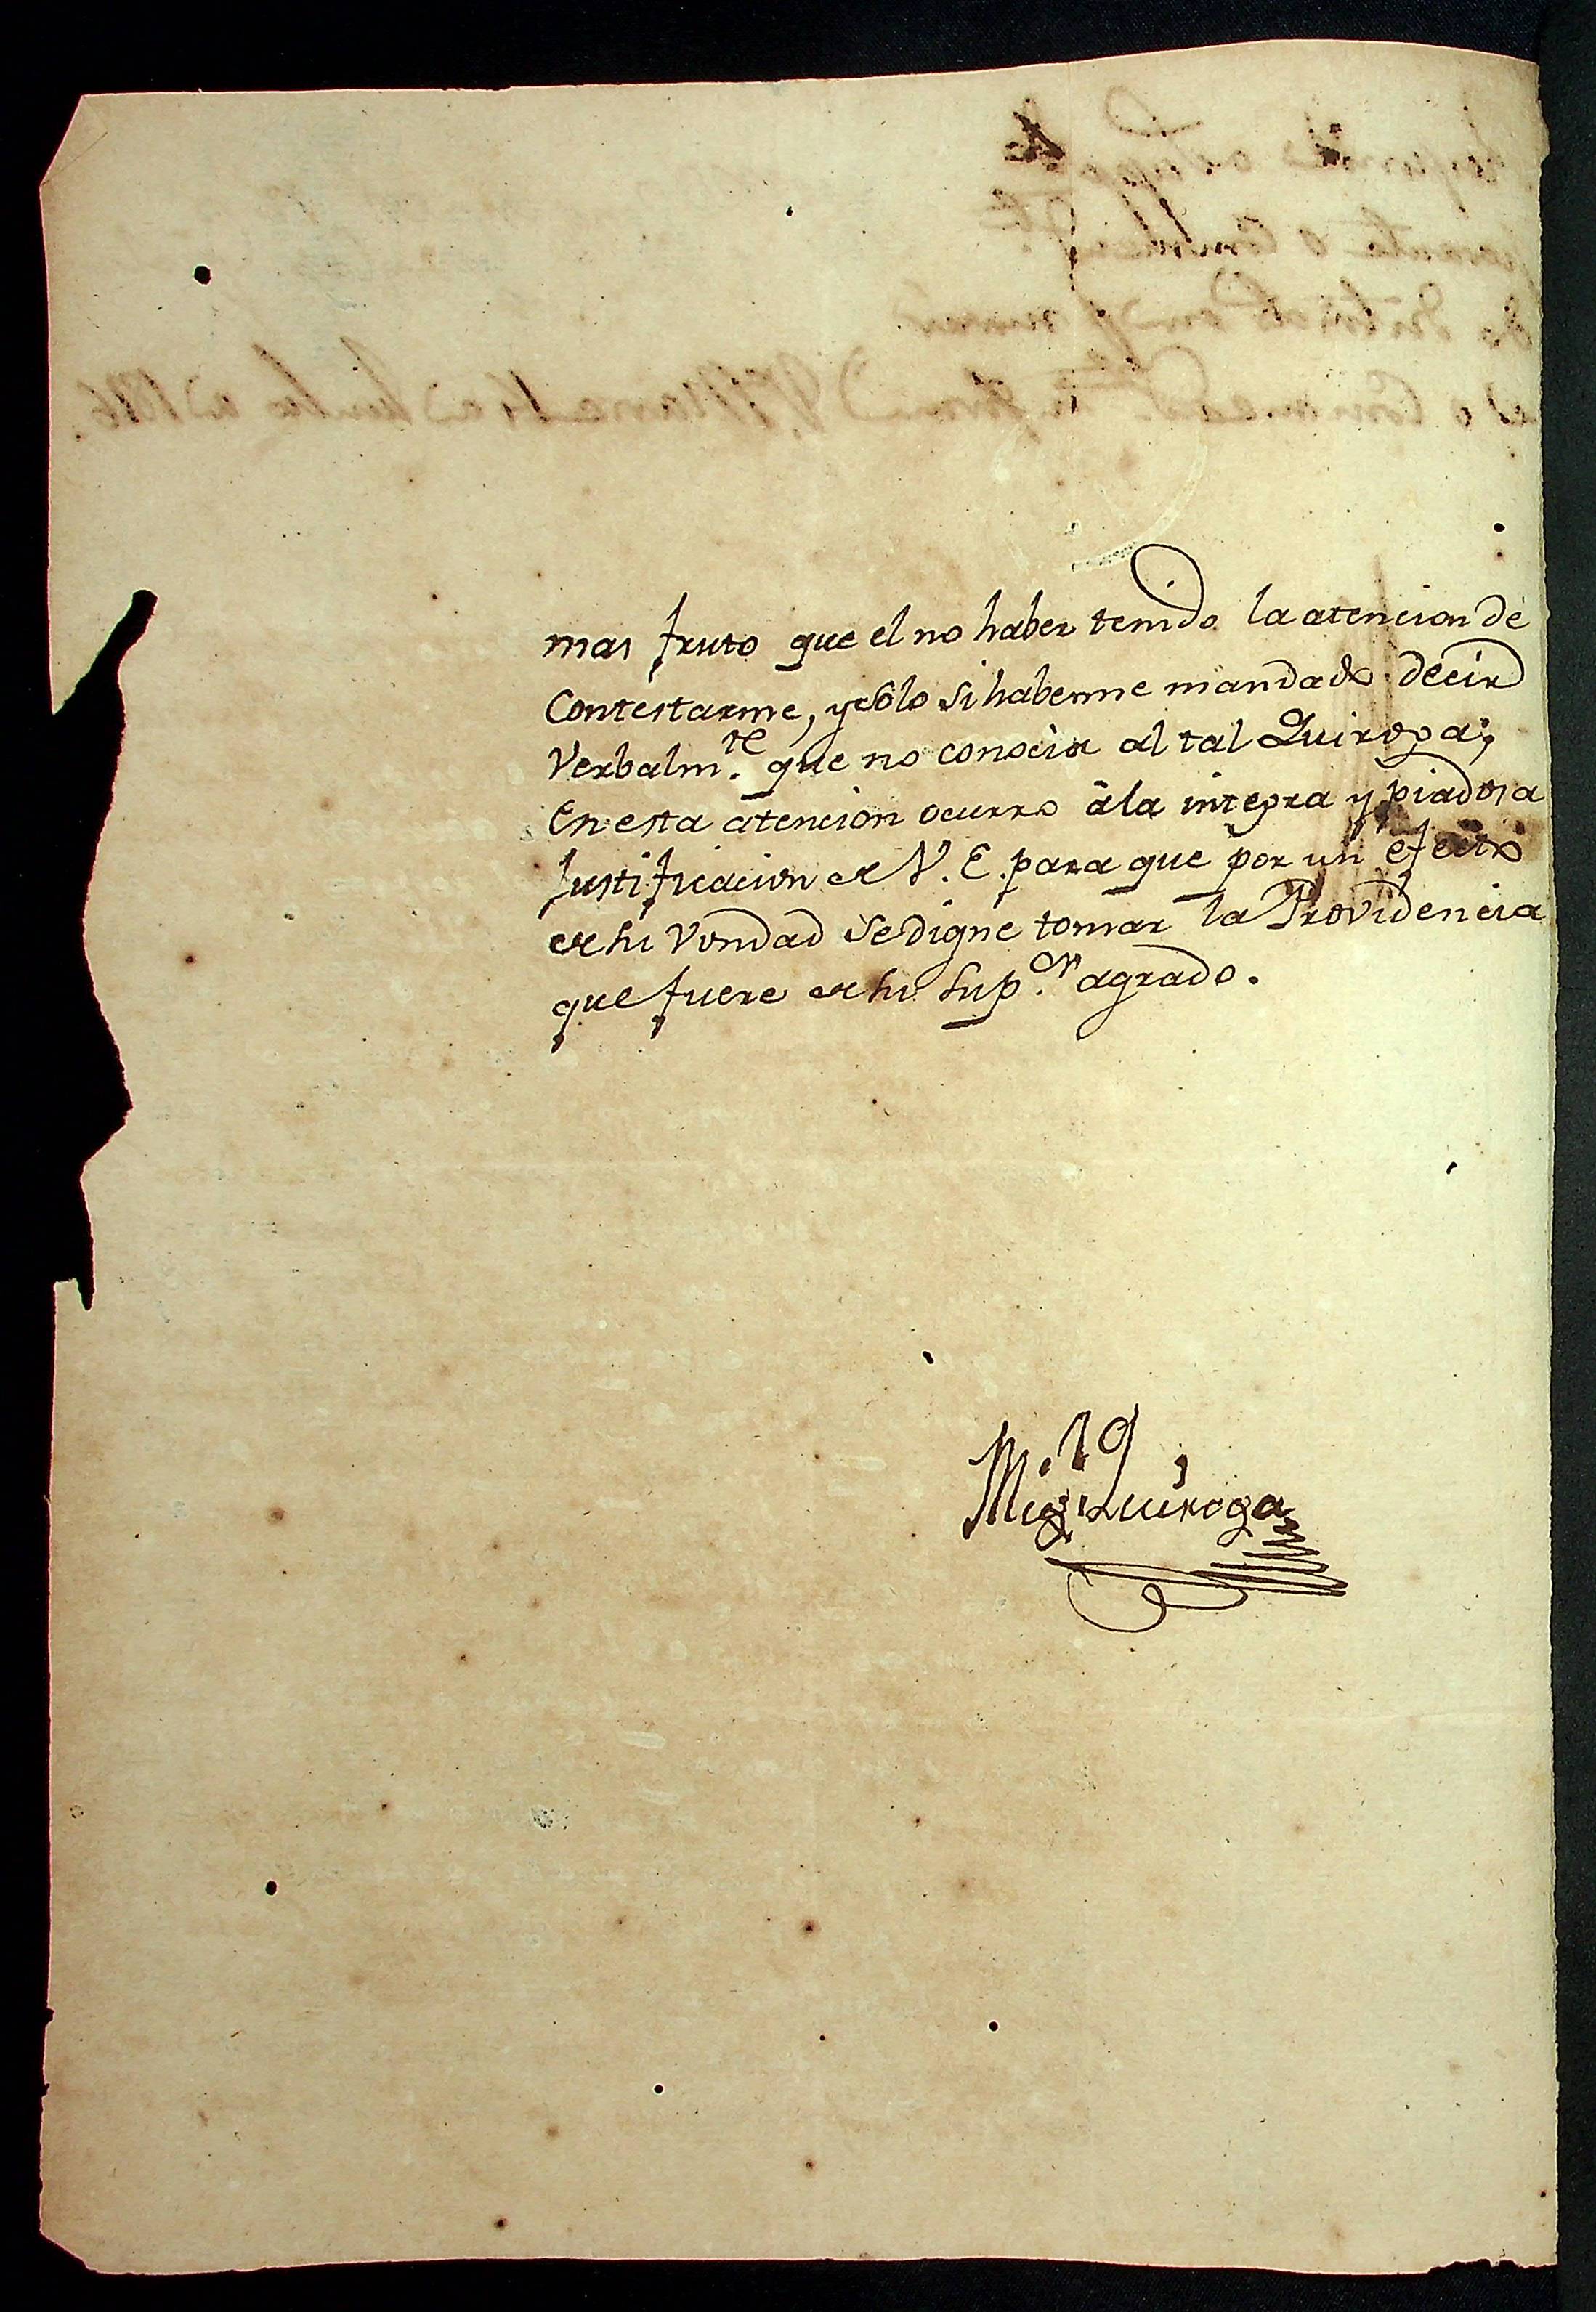 mas fruto que el no haber tenido la atencion de
Contestarme, y solo si haberme mandado decir
Verbalm.te que no conocia al tal Quiroga;
En esta atencion ocurro à la integra y piadosa
Justificacion de V. E. para que por un efecto
de su Vondad se digne tomar la Providencia
que fuere de su Sup.or agrado.
Mig.l Quiroga